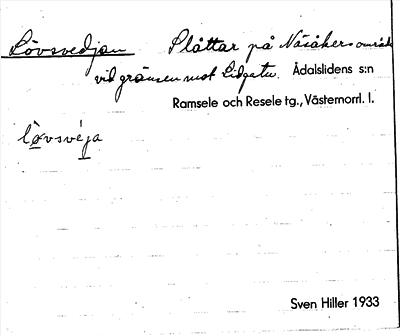 Lövsvedjan Plättar på Näsåkers område
vid gränsen mot Lidgatu. Ådalslidens s:n
Ramsele och Resele tg., Västernorrl. l.
lövsvéja
Sven Hiller 1933